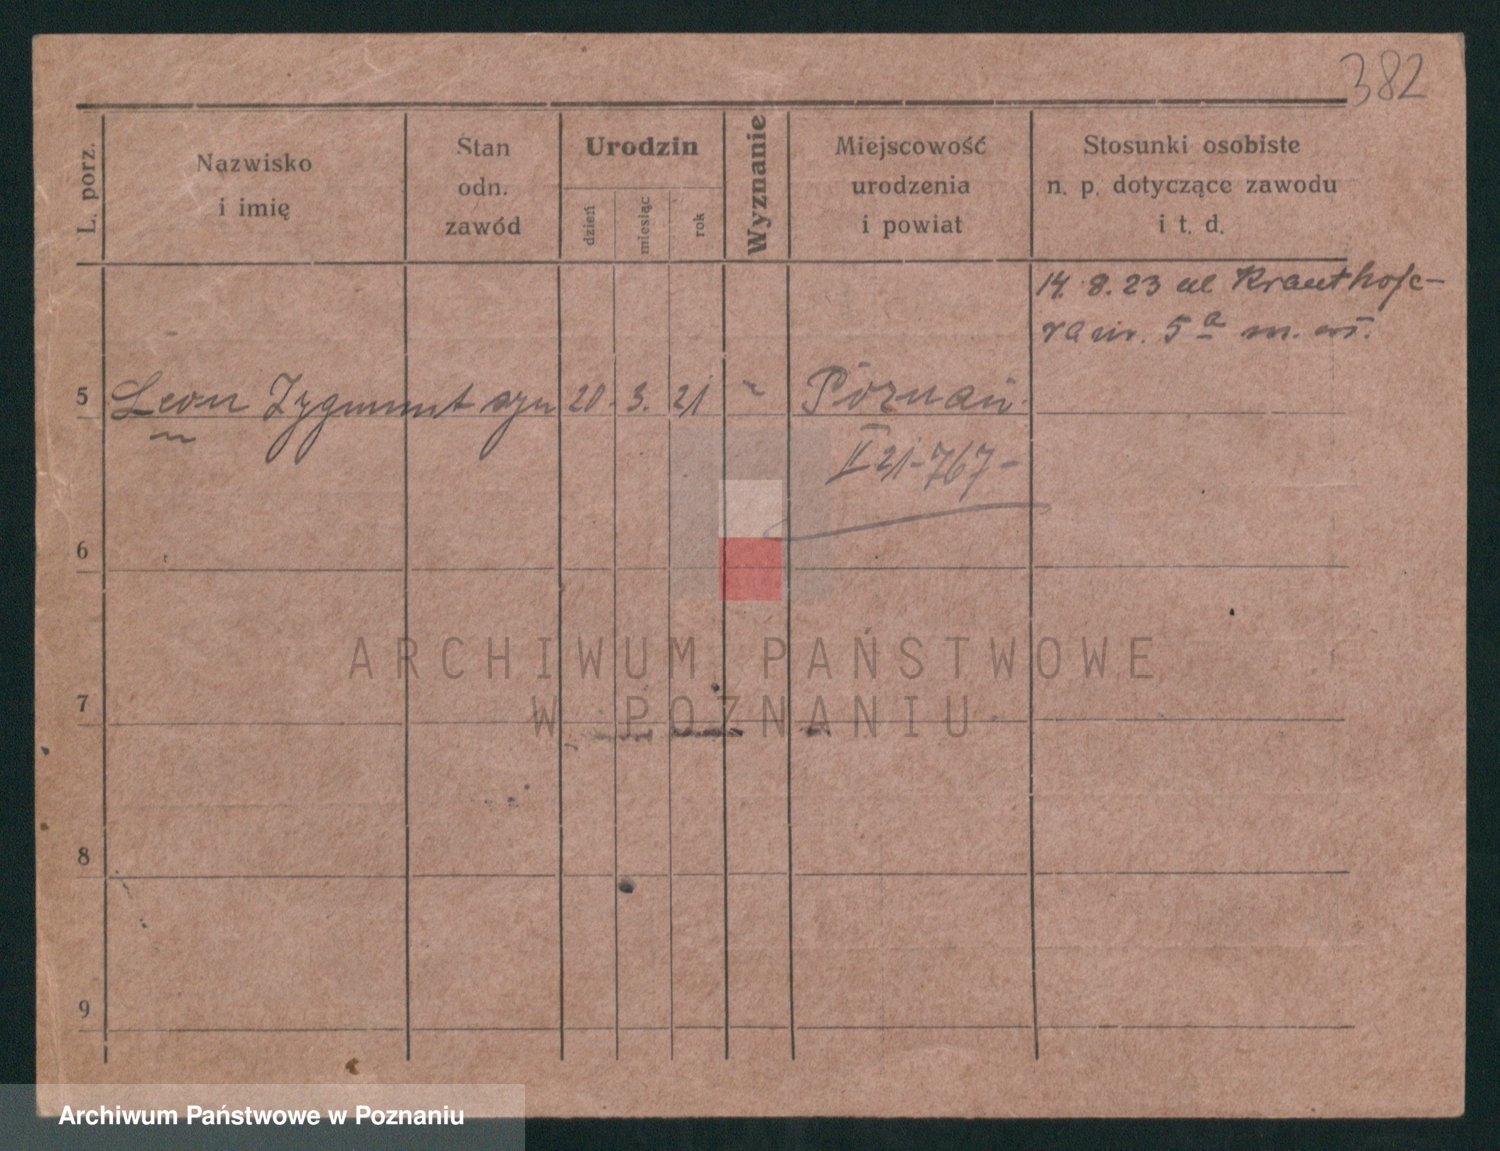 382
L. porz.
Nazwisko
i imię
Stan
odn.
zawód
Urodzin
dzień
miesiąc
rok
Wyznanie
Miejscowość
urodzenia
i powiat
Stosunki osobiste
n. p. dotyczące zawodu
i t. d.
14. 8. 23 ul Krauthofe-
ra nr. 5 a m.
5 Leon Zygmunt syn 20. 3. 21 Poznań
II 21-767-
6
ARCHIWUM PAŃSTWOWE
W POZNANIU
7
8
9
Archiwum Państwowe w Poznaniu